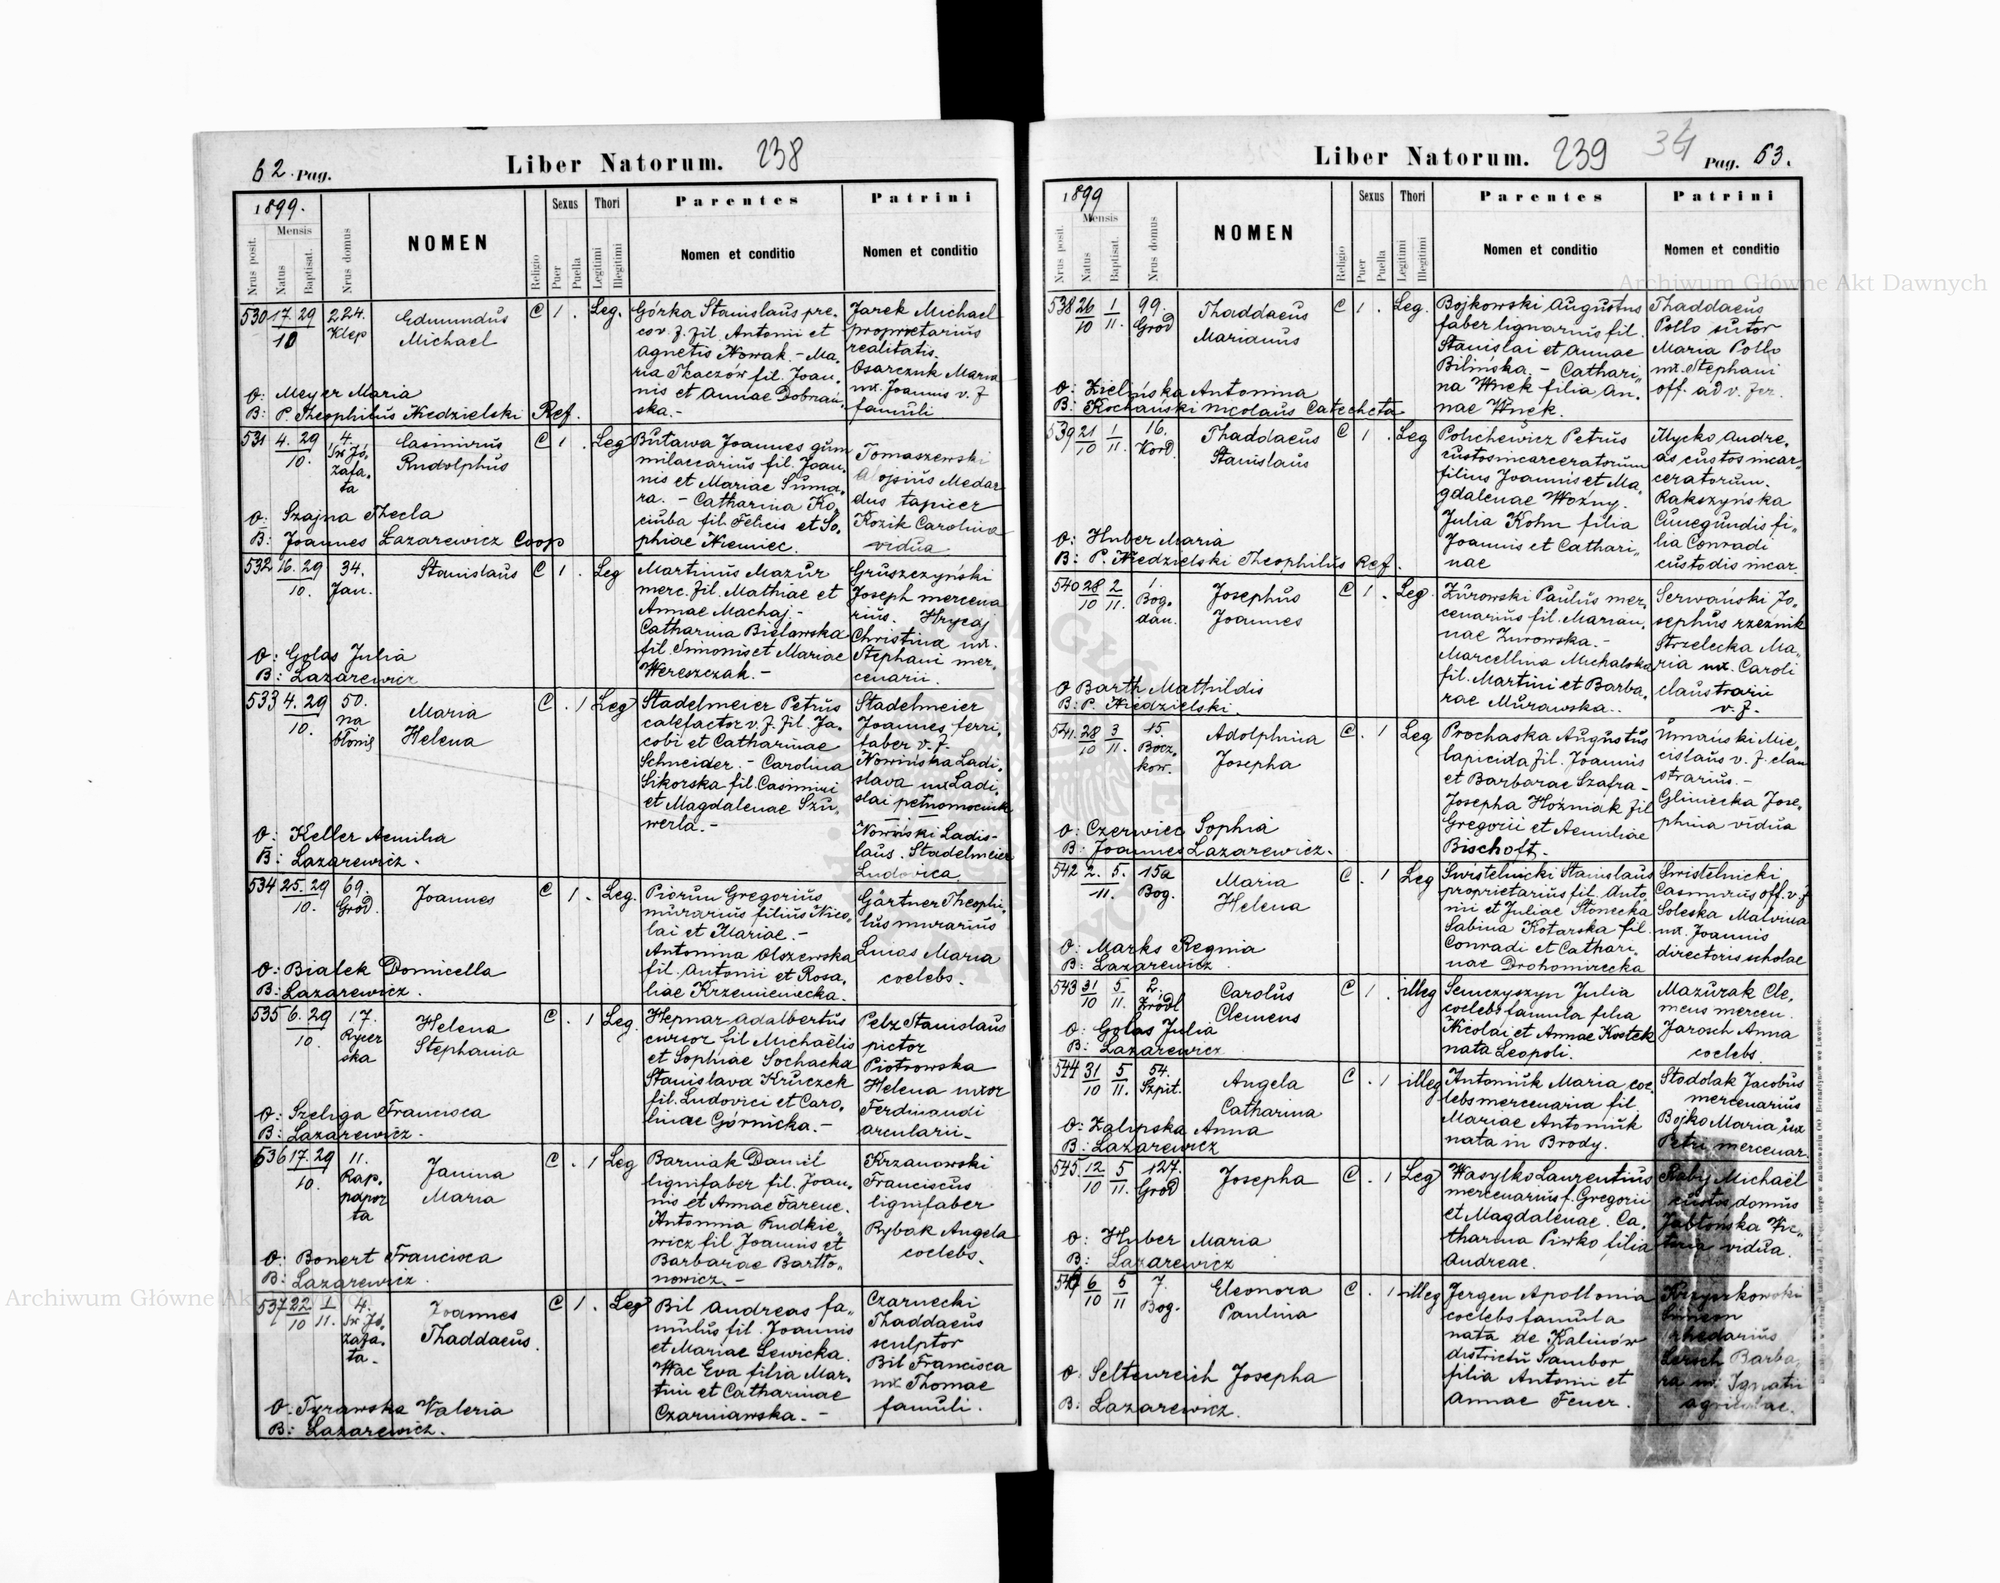 62. Pag.
Liber Natorum. 238
1899.
Nrus posit.
Mensis
Natus
Baptisat.
Nrus domus
NOMEN
Religio
Sexus
Puer
Puella
Thori
Legitimi
Illegitimi
Parentes
Nomen et conditio
Patrini
Nomen et conditio
530 17. 29 224. Edmundus C 1 . Leg. Górka Stanislaus pre- Jarek Michael
10 Klep Michael cov. z. fil. Antonii et proprietarius
Agnetis Nowak. - Ma- realitatis.
ria Tkaczów fil. Joan- Osarczuk Maria
nis et Annae Dobrzań- ux. Joannis v. f
ska. - famuli
O: Meyer Maria
B: P. Theophilus Niedzielski Ref.
531 4. 29 4. Casimirus C 1 . Leg Butawa Joannes gum
10. Św. Jó- Rudolphus milaccarius fil. Joan- Tomaszewski
zafa- nis et Mariae Suma- Alojsius Medar
ta ra. - Catharina Ko- dus tapicer
ciuba fil. Felicis et So- Kozik Carolina
phiae Niemiec. vidua
O: Szajna Thecla
B: Joannes Lazarewicz Coop
532 16. 29 34. Stanislaus C 1 . Leg Martinus Mazur Gruszczyński
10. Jan. merc. fil. Mathiae et Joseph mercena
Annae Machaj - rius. Hrycaj
Catharina Bielawska Christina ux.
fil. Simonis et Mariae Stephani mer-
Wereszczak. - cenarii.
O: Golas Julia
B: Lazarewicz
533 4. 29 50. Maria C . 1 Leg Stadelmeier Petrus Stadelmeier
10. na Helena calefactor v. f. fil. Ja- Joannes ferri-
błonie cobi et Catharinae faber v. f.
Schneider. - Carolina Nowińska Ladi-
Sikorska fil. Casimiri slava ux Ladi-
et Magdalenae Szu- slai pełnomocnik
werla. - Nowiński Ladis-
laus. Stadelmeier
Ludovica
O: Keller Aemilia
B: Lazarewicz.
534 25. 29 69. Joannes C 1 . Leg. Piorun Gregorius Gärtner Theophi-
10. Gród. murarius filius Nico- lus murarius
lai et Mariae. - Lucas Maria
Antonina Olszewska coelebs.
fil. Antonii et Rosa-
liae Krzemieniecka.
O: Białek Domicella
B: Lazarewicz.
535 6. 29 17. Helena C . 1 Leg. Hepnar Adalbertus Pelz Stanislaus
10. Rycer Stephania cursor fil Michaëlis pictor
ska et Sophiae Sochacka Piotrowska
Stanislava Kruczek Helena uxor
fil. Ludovici et Caro- Ferdinandi
linae Górnicka. - arcularii.
O: Szeliga Francisca
B: Lazarewicz.
536 17. 29 11. Janina C . 1 Leg Barniak Daniel Krzanowski
10. Rap. Maria lignifaber fil. Joan- Franciscus
papor nis et Annae Farenc. lignifaber
ta Antonina Kudkie- Rybak Angela
wicz fil Joannis et coelebs.
Barbarae Bartto-
nowicz. -
O: Bonert Francisca
B: Lazarewicz.
537 22 1 4. Joannes C 1 . Leg Bil Andreas fa- Czarnecki
10 11. Św. Jó- Thaddaeus. mulus fil. Joannis Thaddaeus
zafa- et Mariae Lewicka. sculptor
ta. Wac Eva filia Mar- Bil Francisca
tini et Catharinae ux. Thomae
Czarniawska. - famuli.
O: Tyrawska Valeria
B: Lazarewicz.
Liber Natorum. 239 34 Pag. 63.
1899
Nrus posit.
Mensis
Natus
Baptisat.
Nrus domus
NOMEN
Religio
Sexus
Puer
Puella
Thori
Legitimi
Illegitimi
Parentes
Nomen et conditio
Patrini
Nomen et conditio
538 26 1 99. Thaddaeus C 1 . Leg. Bojkowski Augustus Thaddaeus
10 11. Gród Marianus faber lignarius fil. Pollo sutor
Stanislai et Annae Maria Pollo
Bilińska. - Cathari- ux. Stephani
na Wnek filia An- off. ad v. fer.
nae Wnęk.
O: Zielińska Antonina
B: Kochański Nicolaus Catecheta
539 21 1 16. Thaddaeus C 1 . Leg Polichewicz Petrus Mycko Andre-
10 11. Kord. Stanislaus custos incarceratorum as custos incar-
filius Joannis et Ma- ceratorum.
gdalenae Woźny. Rakszyńska
Julia Kohn filia Cunegundis fi-
Joannis et Cathari- lia Conradi
nae custodis incar.
O: Huber Maria
B: P. Niedzielski Theophilus Ref.
540 28 2 1. Josephus C 1 . Leg. Żurowski Paulus mer- Serwański Jo-
10 11. Bog- Joannes cenarius fil. Marian- sephus rzeźnik
dan. nae Żurowska. - Strzelecka Ma-
Marcellina Michalska ria ux. Caroli
fil. Martini et Barba- claustrarii
rae Murawska.. v. f.
O Barth Mathildis
B: P. Niedzielski.
541. 28 3 15. Adolphina C . 1 Leg Prochaska Augustus Umański Mie-
10 11. Bocz- Josepha lapicida fil. Joannis cislaus v. f. clau
kow. et Barbarae Szafra - strarius. -
Josepha Hoźniak fil Gliniecka Jose-
Gregorii et Aemiliae phina vidua
Bischoft.
O: Czerwiec Sophia
B: Joannes Lazarewicz.
542 2. 5. 15a Maria C . 1 Leg Świstelnicki Stanislaus Świstelnicki
11. Bog. Helena proprietarius fil. Anto- Casimirus off. v. f
nii et Juliae Stonecka Soleska Malvina
Sabina Kotarska fil. ux. Joannis
Conradi et Cathari- directoris scholae
nae Drohomirecka
O: Marks Regina
B: Lazarewicz
543 31 5 2. Carolus C 1 . illeg Semczyszyn Julia Mazurak Cle-
10 11. Źródl Clemens coelebs famula filia mens mercen.
Nicolai et Annae Kostek Jarosch Anna
nata Leopoli. coelebs.
O: Golas Julia
B: Lazarewicz
544 31 5 54. Angela C . 1 illeg Antoniuk Maria coe- Stodolak Jacobus
10 11. Szpit. Catharina lebs mercenaria fil. mercenarius
Mariae Antoniuk Bojko Maria ux
nata in Brody. Petri mercenar.
O: Zalipska Anna
B: Lazarewicz
545 12 5 127. Josepha C . 1 Leg Wasylko Laurentius Raby Michaël
10 11. Gród mercenarius f. Gregorii custos domus
et Magdalenae. Ca- Jabłońska Vic-
tharina Piwko filia toria vidua.
Andreae.
O: Huber Maria
B: Lazarewicz
546 6 5 7. Eleonora C . 1 illeg Jergen Apollonia Krzyszkowski
10 11 Bog. Paulina coelebs famula Simeon
nata de Kalinów rhedarius
districtu Sambor Lersch Barba-
filia Antonii et ra ux. Ignatii
Annae Feuer. agricolae.
O: Seltenreich Josepha
B: Lazarewicz.
Archiwum Główne Akt Dawnych
Archiwum Główne Akt Dawnych